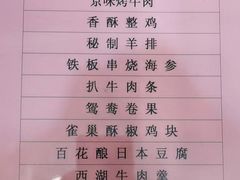 京味烤牛肉
香酥整鸡
秘制羊排
铁板串烧海参
扒牛肉条
鸳鸯卷果
雀巢酥椒鸡块
百花酿日本豆腐
西湖牛肉羹